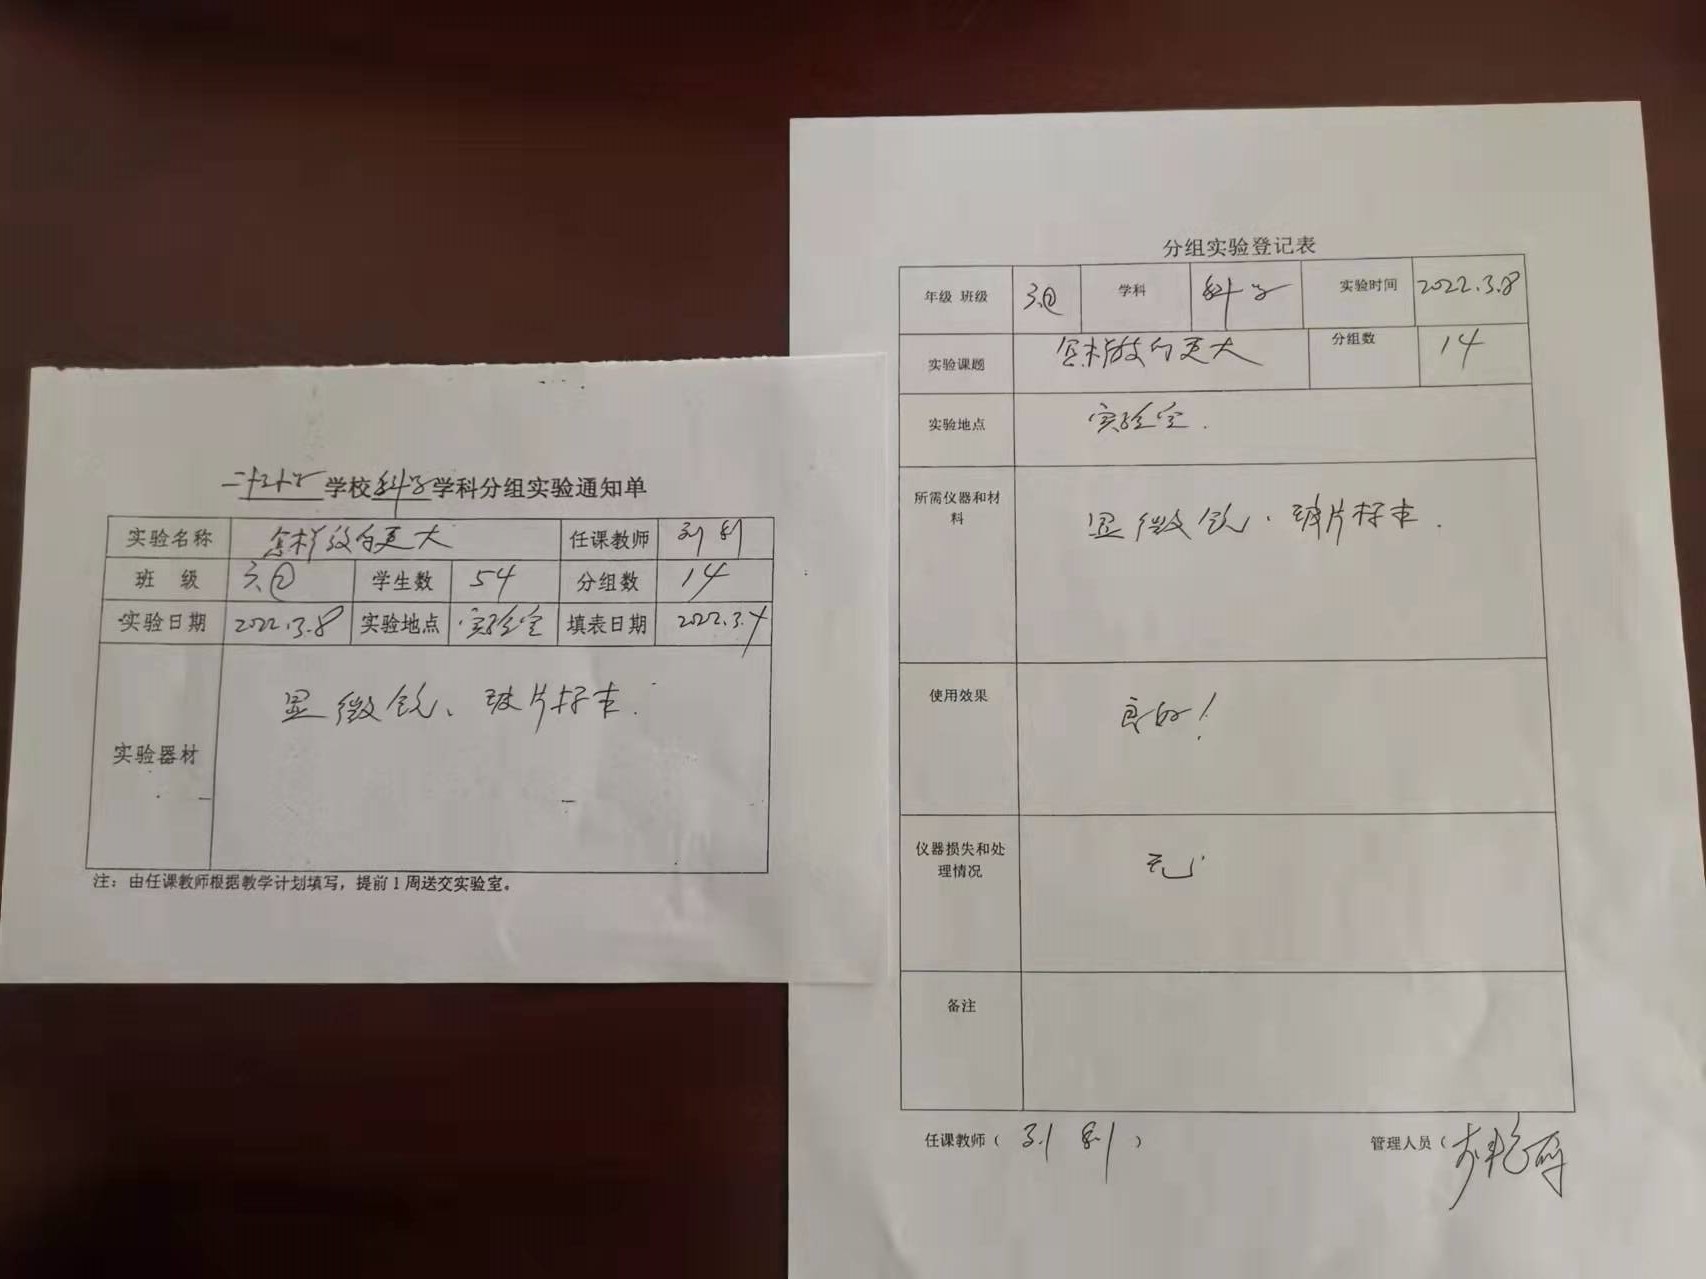 学校科学学科分组实验通知单
实验名称 怎样放的更大 任课教师 刘
班 级 六④ 学生数 54 分组数 14
实验日期 2022.3.8 实验地点 实验室 填表日期 2022.3.4
实验器材 显微镜、玻片标本.
注：由任课教师根据教学计划填写，提前1周送交实验室。
分组实验登记表
年级 班级 六④ 学科 科学 实验时间 2022.3.8
实验课题 怎样放的更大 分组数 14
实验地点 实验室.
所需仪器和材料 显微镜、玻片标本.
使用效果 良好！
仪器损失和处理情况 无
备注
任课教师（ 刘 ） 管理人员（